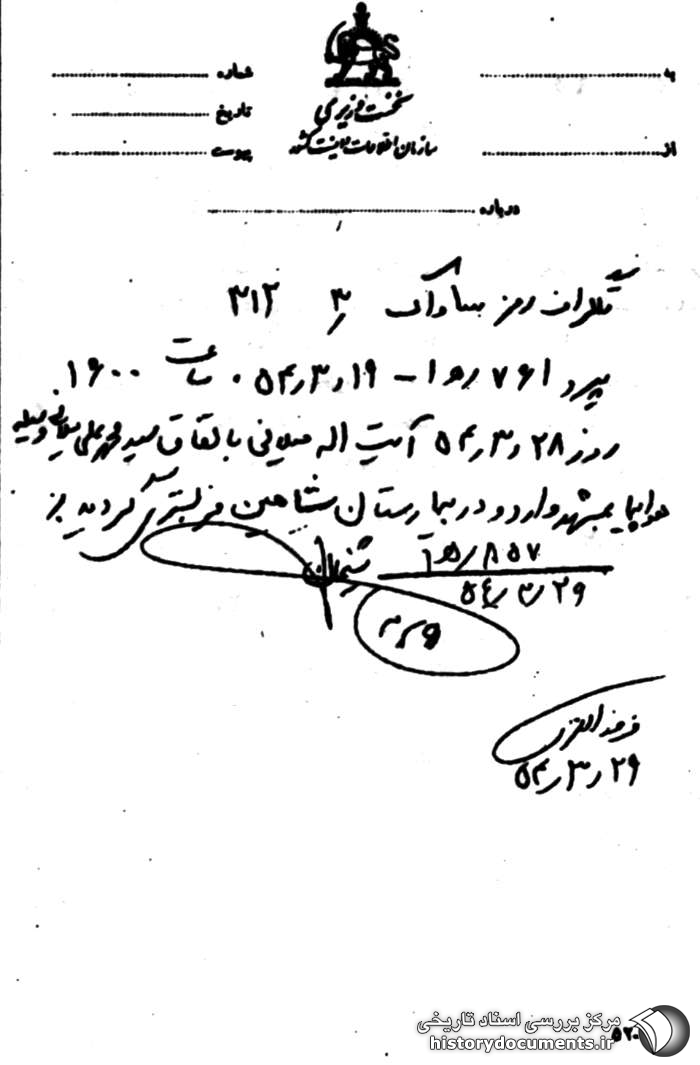 نخست وزیری
سازمان اطلاعات و امنیت کشور
به
از
شماره
تاریخ
پیوست
درباره
تلگراف رمز ساواک ۳۱۲
پیرو ۷۶۱ر۵۱ - ۱۹ر۳ر۵۴ ساعت ۱۶۰۰
روز ۲۸ر۳ر۵۴ آیت اله میلانی باتفاق سید محمد علی میلانی وسیله
هواپیما بمشهد وارد و در بیمارستان شاهین فر بستری گردید
۸۵۷ر۵۱
۲۹ر۳ر۵۴
شیخان
۲۹ر۳ر۵۴
مرکز بررسی اسناد تاریخی
historydocuments.ir